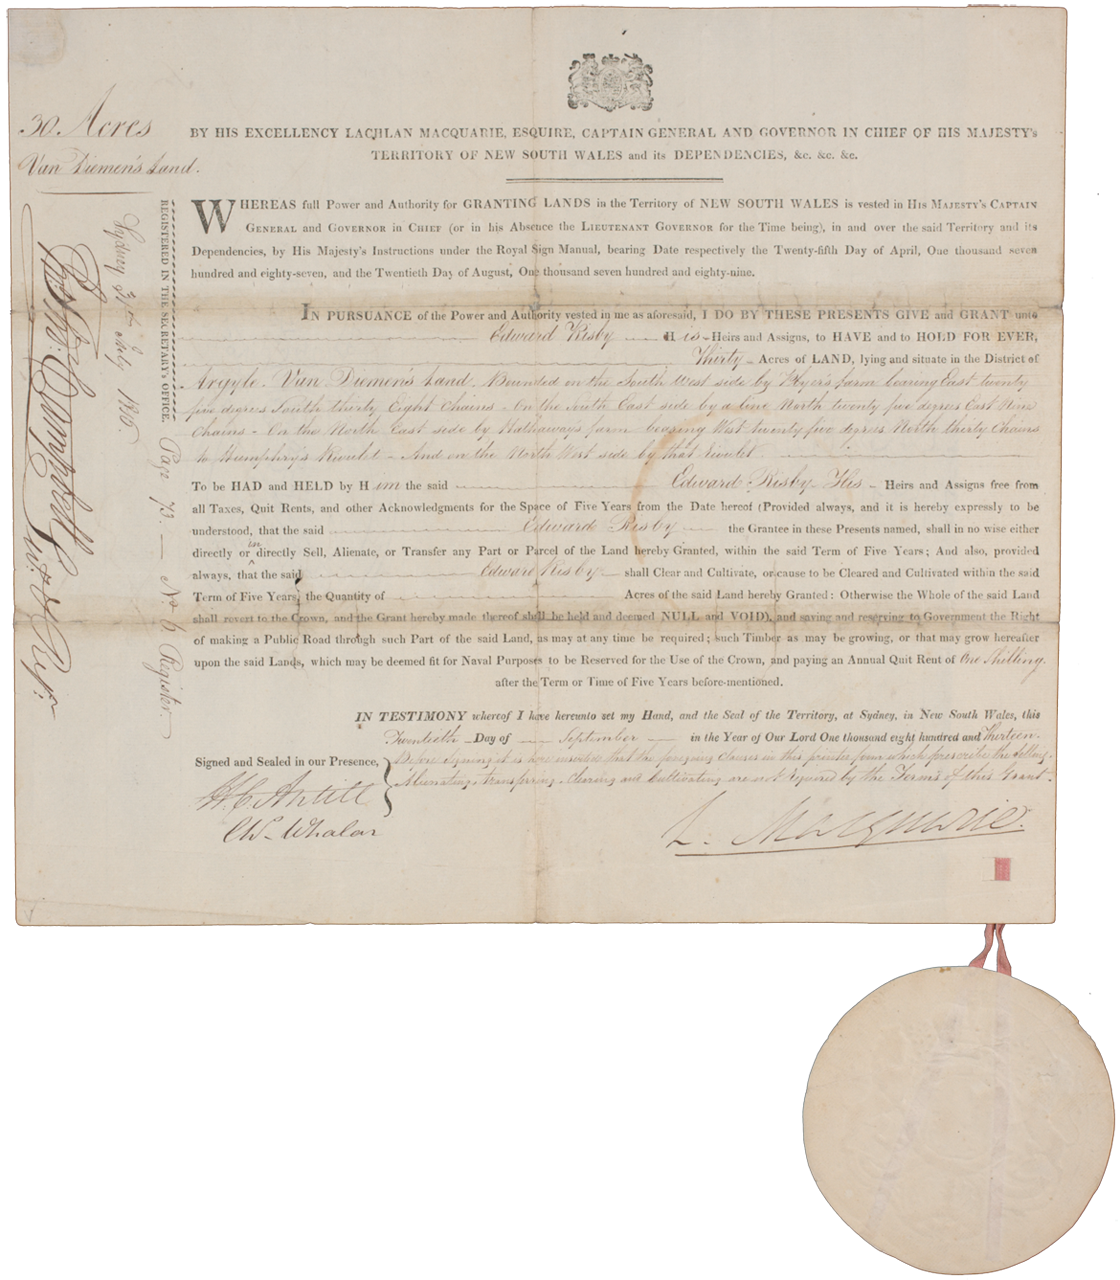 30 Acres
Van Diemen's Land.
BY HIS EXCELLENCY LACHLAN MACQUARIE, ESQUIRE, CAPTAIN GENERAL AND GOVERNOR IN CHIEF OF HIS MAJESTY's
TERRITORY OF NEW SOUTH WALES and its DEPENDENCIES, &c. &c. &c.
WHEREAS full Power and Authority for GRANTING LANDS in the Territory of NEW SOUTH WALES is vested in His Majesty's Captain
General and Governor in Chief (or in his Absence the Lieutenant Governor for the Time being), in and over the said Territory and its
Dependencies, by His Majesty's Instructions under the Royal Sign Manual, bearing Date respectively the Twenty-fifth Day of April, One thousand seven
hundred and eighty-seven, and the Twentieth Day of August, One thousand seven hundred and eighty-nine.
In PURSUANCE of the Power and Authority vested in me as aforesaid, I DO BY THESE PRESENTS GIVE and GRANT unto
Edward Risby His Heirs and Assigns, to HAVE and to HOLD FOR EVER,
Thirty Acres of LAND, lying and situate in the District of
Argyle. Van Diemen's Land. Bounded on the South West side by farm bearing East twenty
five degrees South thirty Eight Chains - On the South East side by a line North twenty five degrees East
Chains - On the North East side by Hathaway's farm bearing West twenty five degrees North thirty Chains
to Humphry's Rivulet - And on the North West side by that rivulet.
To be HAD and HELD by Him the said Edward Risby His Heirs and Assigns free from
all Taxes, Quit Rents, and other Acknowledgments for the Space of Five Years from the Date hereof (Provided always, and it is hereby expressly to be
understood, that the said Edward Risby the Grantee in these Presents named, shall in no wise either
directly or indirectly Sell, Alienate, or Transfer any Part or Parcel of the Land hereby Granted, within the said Term of Five Years; And also, provided
always, that the said Edward Risby shall Clear and Cultivate, or cause to be Cleared and Cultivated within the said
Term of Five Years, the Quantity of Acres of the said Land hereby Granted: Otherwise the Whole of the said Land
shall revert to the Crown, and the Grant hereby made thereof shall be held and deemed NULL and VOID), and saving and reserving to Government the Right
of making a Public Road through such Part of the said Land, as may at any time be required; such Timber as may be growing, or that may grow hereafter
upon the said Lands, which may be deemed fit for Naval Purposes to be Reserved for the Use of the Crown, and paying an Annual Quit Rent of One Shilling.
after the Term or Time of Five Years before-mentioned.
IN TESTIMONY whereof I have hereunto set my Hand, and the Seal of the Territory, at Sydney, in New South Wales, this
Twentieth Day of September in the Year of Our Lord One thousand eight hundred and Thirteen.
Before signing it is here inserted that the foregoing Clauses in this printed form which prescribe the selling,
Alienating, transferring, clearing and Cultivating are not required by the Terms of this Grant.
Signed and Sealed in our Presence,
H. C. Antill
L. Macquarie.
REGISTERED IN THE SECRETARY's OFFICE.
Page 73. No. 6 Register.
Sydney 31st July 1816
Thos. Campbell